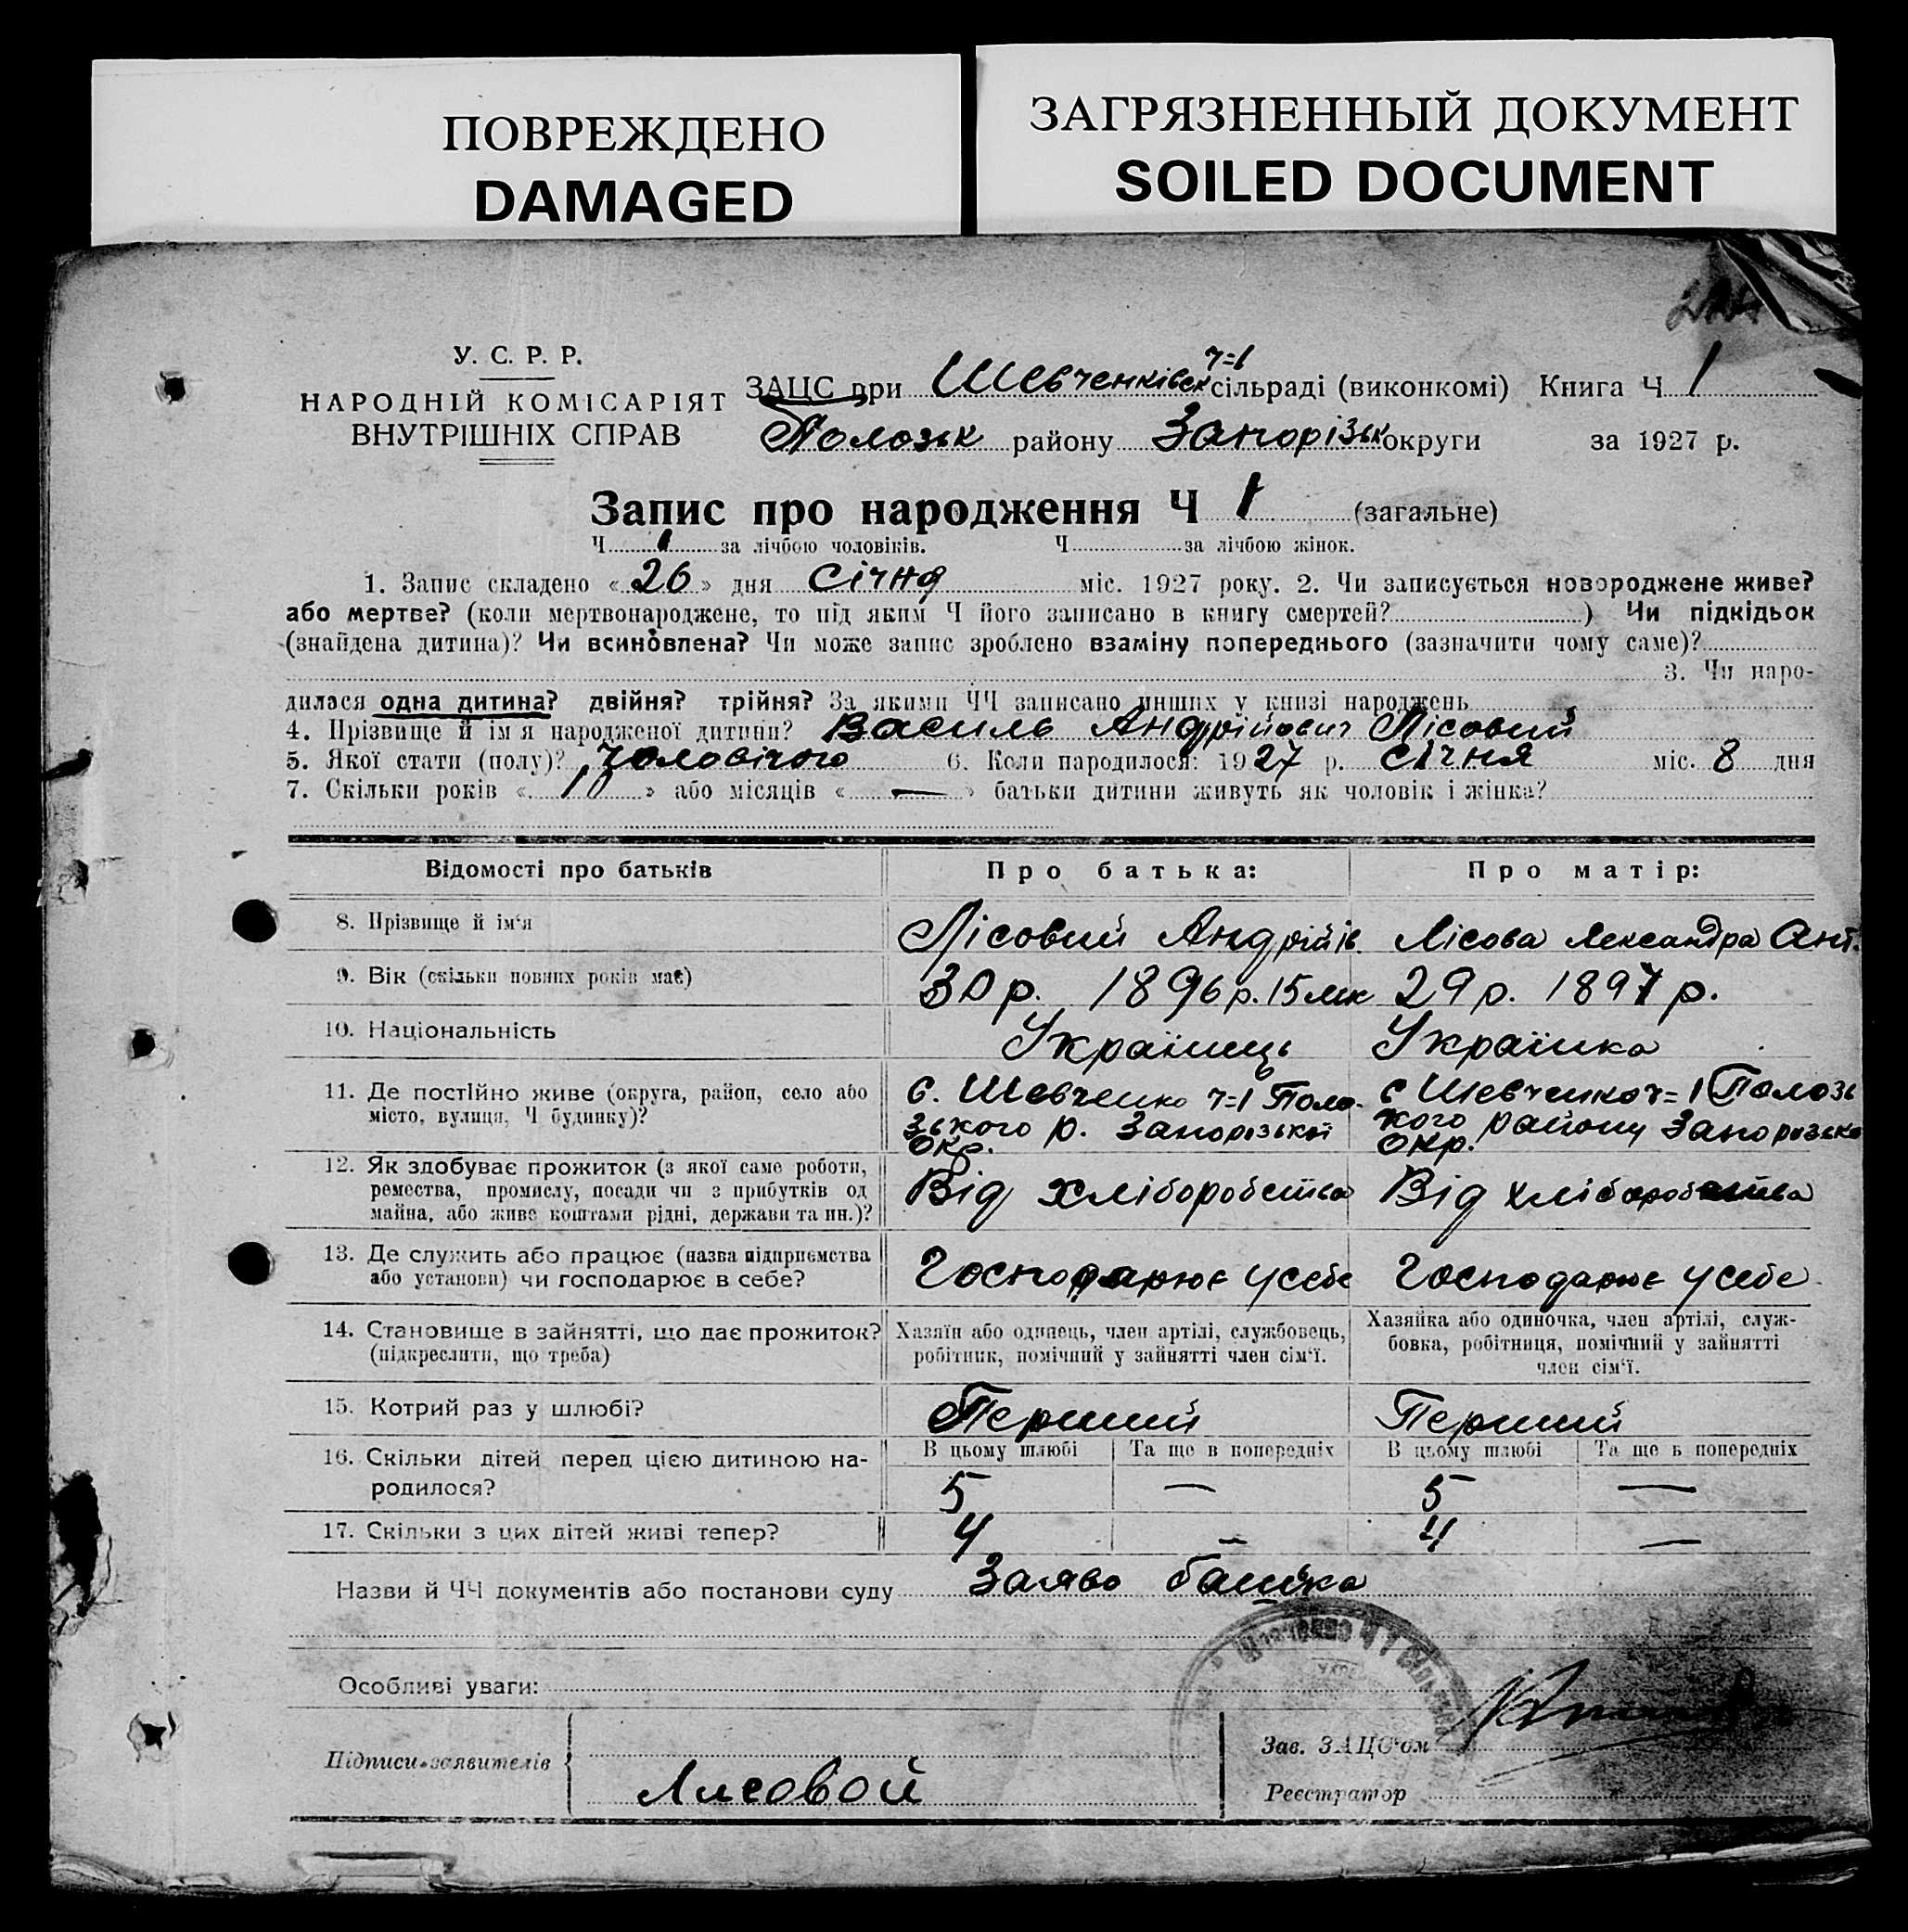 ПОВРЕЖДЕНО
DAMAGED
ЗАГРЯЗНЕННЫЙ ДОКУМЕНТ
SOILED DOCUMENT
У. С. Р. Р.
НАРОДНІЙ КОМІСАРІЯТ
ВНУТРІШНІХ СПРАВ
ч=1
ЗАЦС при Шевченківськ сільраді (виконкомі) Книга Ч 1
Полозьк району Запорізьк округи за 1927 р.
Запис про народження Ч 1 (загальне)
Ч 1 за лічбою чоловіків. Ч за лічбою жінок.
1. Запис складено «26» дня Січня міс. 1927 року. 2. Чи записується новороджене живе?
або мертве? (коли мертвонароджене, то під яким Ч його записано в книгу смертей? ) Чи підкідьок
(знайдена дитина)? Чи всиновлена? Чи може запис зроблено взаміну попереднього (зазначити чому саме)?
3. Чи наро-
дилася одна дитина? двійня? трійня? За якими ЧЧ записано инших у книзі народжень
4. Прізвище й ім'я народженої дитини? Василь Андрійович Лісовий
5. Якої стати (полу)? чоловічого 6. Коли народилося: 1927 р. січня міс. 8 дня
7. Скільки років «10» або місяців «—» батьки дитини живуть як чоловік і жінка?
Відомості про батьків Про батька: Про матір:
8. Прізвище й ім'я Лісовий Андрійів Лісова Лександра Ант.
9. Вік (скільки повних років має) 30 р. 1896 р. 29 р. 1897 р.
10. Національність Україиць Українка
11. Де постійно живе (округа, район, село або
місто, вулиця, Ч будинку)?
с. Шевченко ч=1 Поло-
зського р. Запорізької
окр.
с Шевченко ч=1 Полозь
кого району Запорізько
окр.
12. Як здобуває прожиток (з якої саме роботи,
ремества, промислу, посади чи з прибутків од
майна, або живе коштами рідні, держави та ин.)?
Від хліборобства Від хліборобства
13. Де служить або працює (назва підприємства
або установи) чи господарює в себе?
Господарює у себе Господарює у себе
14. Становище в зайнятті, що дає прожиток?
(підкреслити, що треба)
Хазяїн або одинець, член артілі, службовець,
робітник, помічний у зайнятті член сім'ї.
Хазяйка або одиночка, член артілі, служ-
бовка, робітниця, помічний у зайнятті
член сім'ї.
15. Котрий раз у шлюбі? Перший Перший
В цьому шлюбі Та ще в попередніх В цьому шлюбі Та ще в попередніх
16. Скільки дітей перед цією дитиною на-
родилося?
5 — 5 —
17. Скільки з цих дітей живі тепер? 4 — 4 —
Назви й ЧЧ документів або постанови суду Заява батька
Особливі уваги:
Підписи заявителів
Лисовой
Зав. ЗАЦС'ом
Реєстратор